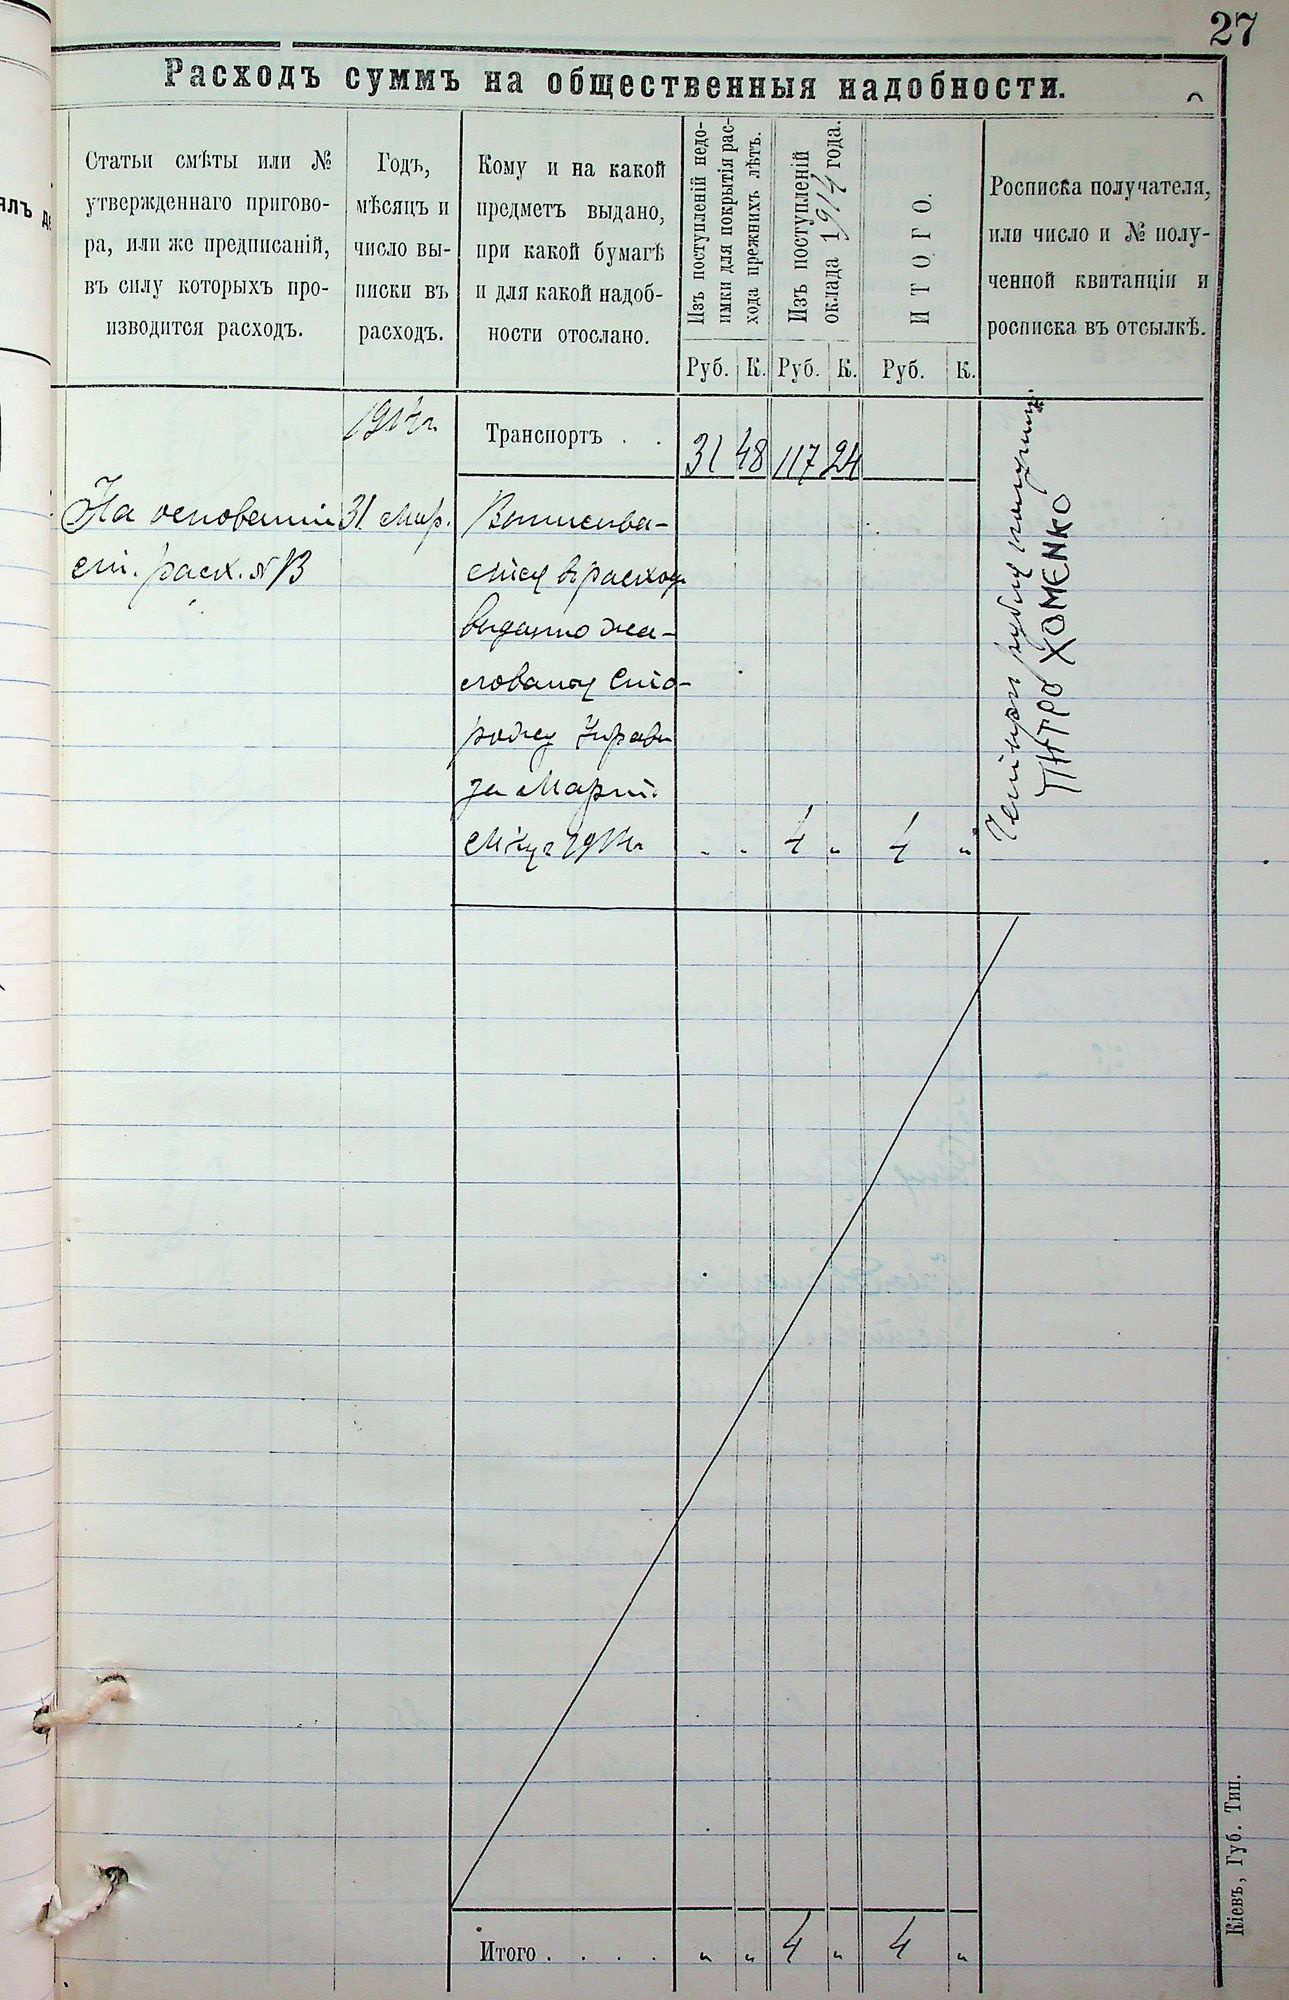 27
Расходъ суммъ на общественныя надобности.
Статьи смѣты или №
утвержденнаго пригово-
ра, или же предписаній,
въ силу которыхъ про-
изводится расходъ.
Годъ,
мѣсяцъ и
число вы-
писки въ
расходъ.
Кому и на какой
предметъ выдано,
при какой бумагѣ
и для какой надоб-
ности отослано.
Изъ поступленій недо-
имки для покрытія рас-
хода прежнихъ лѣтъ.
Изъ поступленій
оклада 1914 года.
ИТОГО.
Росписка получателя,
или число и № полу-
ченной квитанціи и
росписка въ отсылкѣ.
Руб. К. Руб. К. Руб. К.
1914 г.
Транспортъ . . 31 48 117 24
На основаніи
ст. расх. №
31 Мар.
Выписыва-
ется въ расходъ
выдано жа-
лованья Сто-
рожу Управы
за Мартъ
Мѣц. 1914 г. „ „ 4 „ 4 „
Четыри рубля получилъ
ПИТРО ХОМЕНКО
Итого . . . . „ „ 4 „ 4 „
Кіевъ, Губ. Тип.